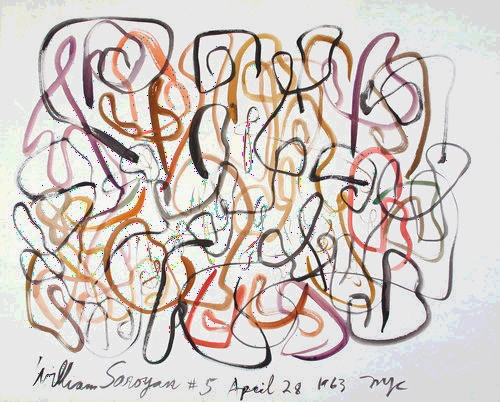 William Saroyan #5 April 28 1963 NYC